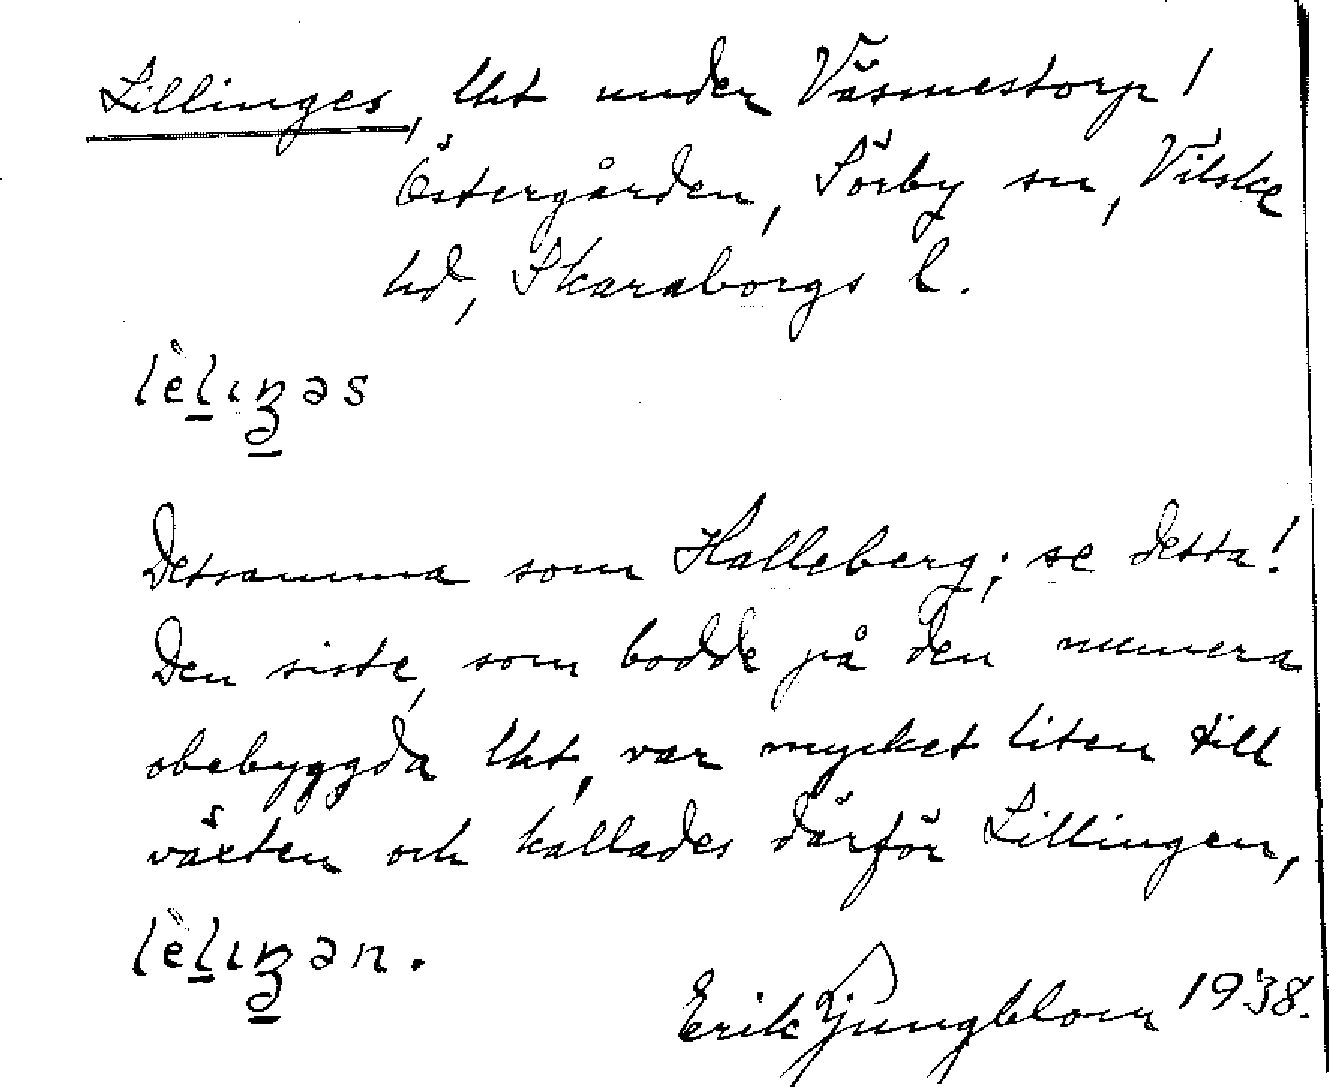 Lillinges, lht under Väsmestorp!
Östergården, Sörby sn, Vilske
hd, Skaraborgs l.
Detsamma som Halleberg; se detta!
Den siste, som bodde på den numera
obebyggda lht, var mycket liten till
växten och kallades därför Lillingen,
Erik Ljungblom 1938.